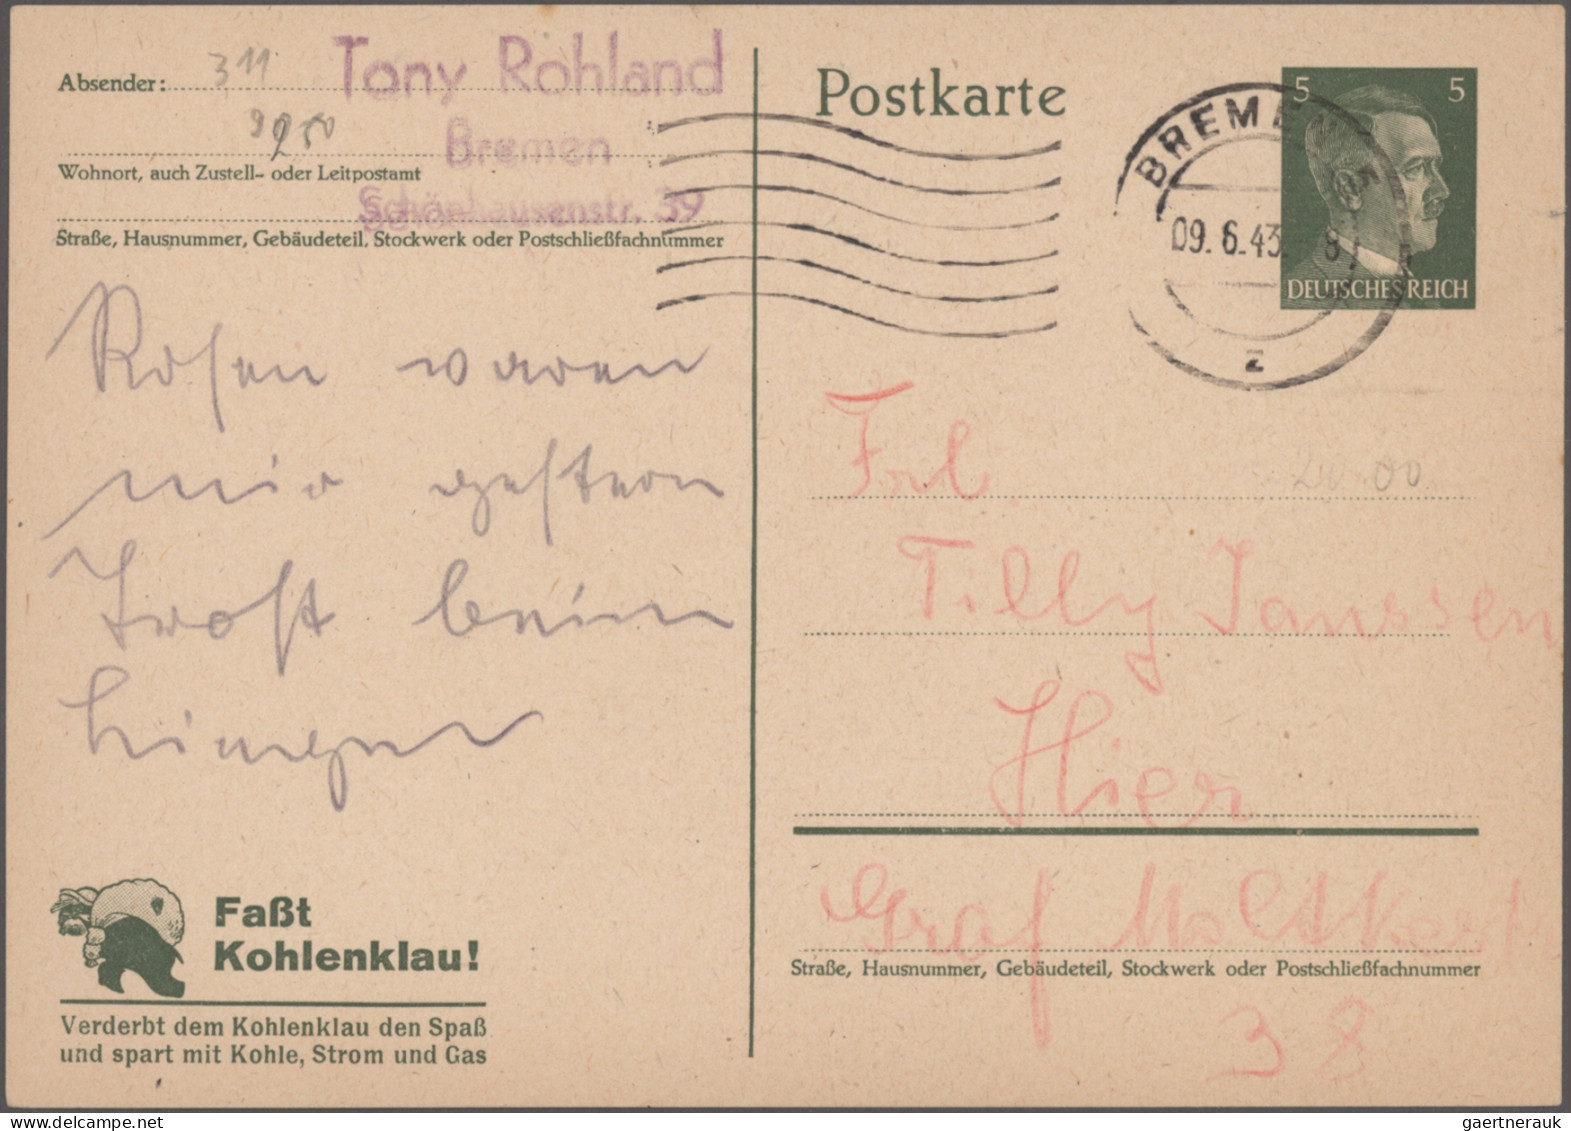 Absender:
311
Tony Rohland
9250
Bremen
Wohnort, auch Zustell- oder Leitpostamt
Schönhausenstr. 39
Straße, Hausnummer, Gebäudeteil, Stockwerk oder Postschließfachnummer
Rosen waren
mir gestern
Trost beim
Faßt
Kohlenklau!
Verderbt dem Kohlenklau den Spaß
und spart mit Kohle, Strom und Gas
Postkarte
5 5
BREMEN 5
09.6.43. 8
z
DEUTSCHES REICH
Frl
Tilly Janssen
Hier
Graf Moltkestr
Straße, Hausnummer, Gebäudeteil, Stockwerk oder Postschließfachnummer
38
gaertnerauk